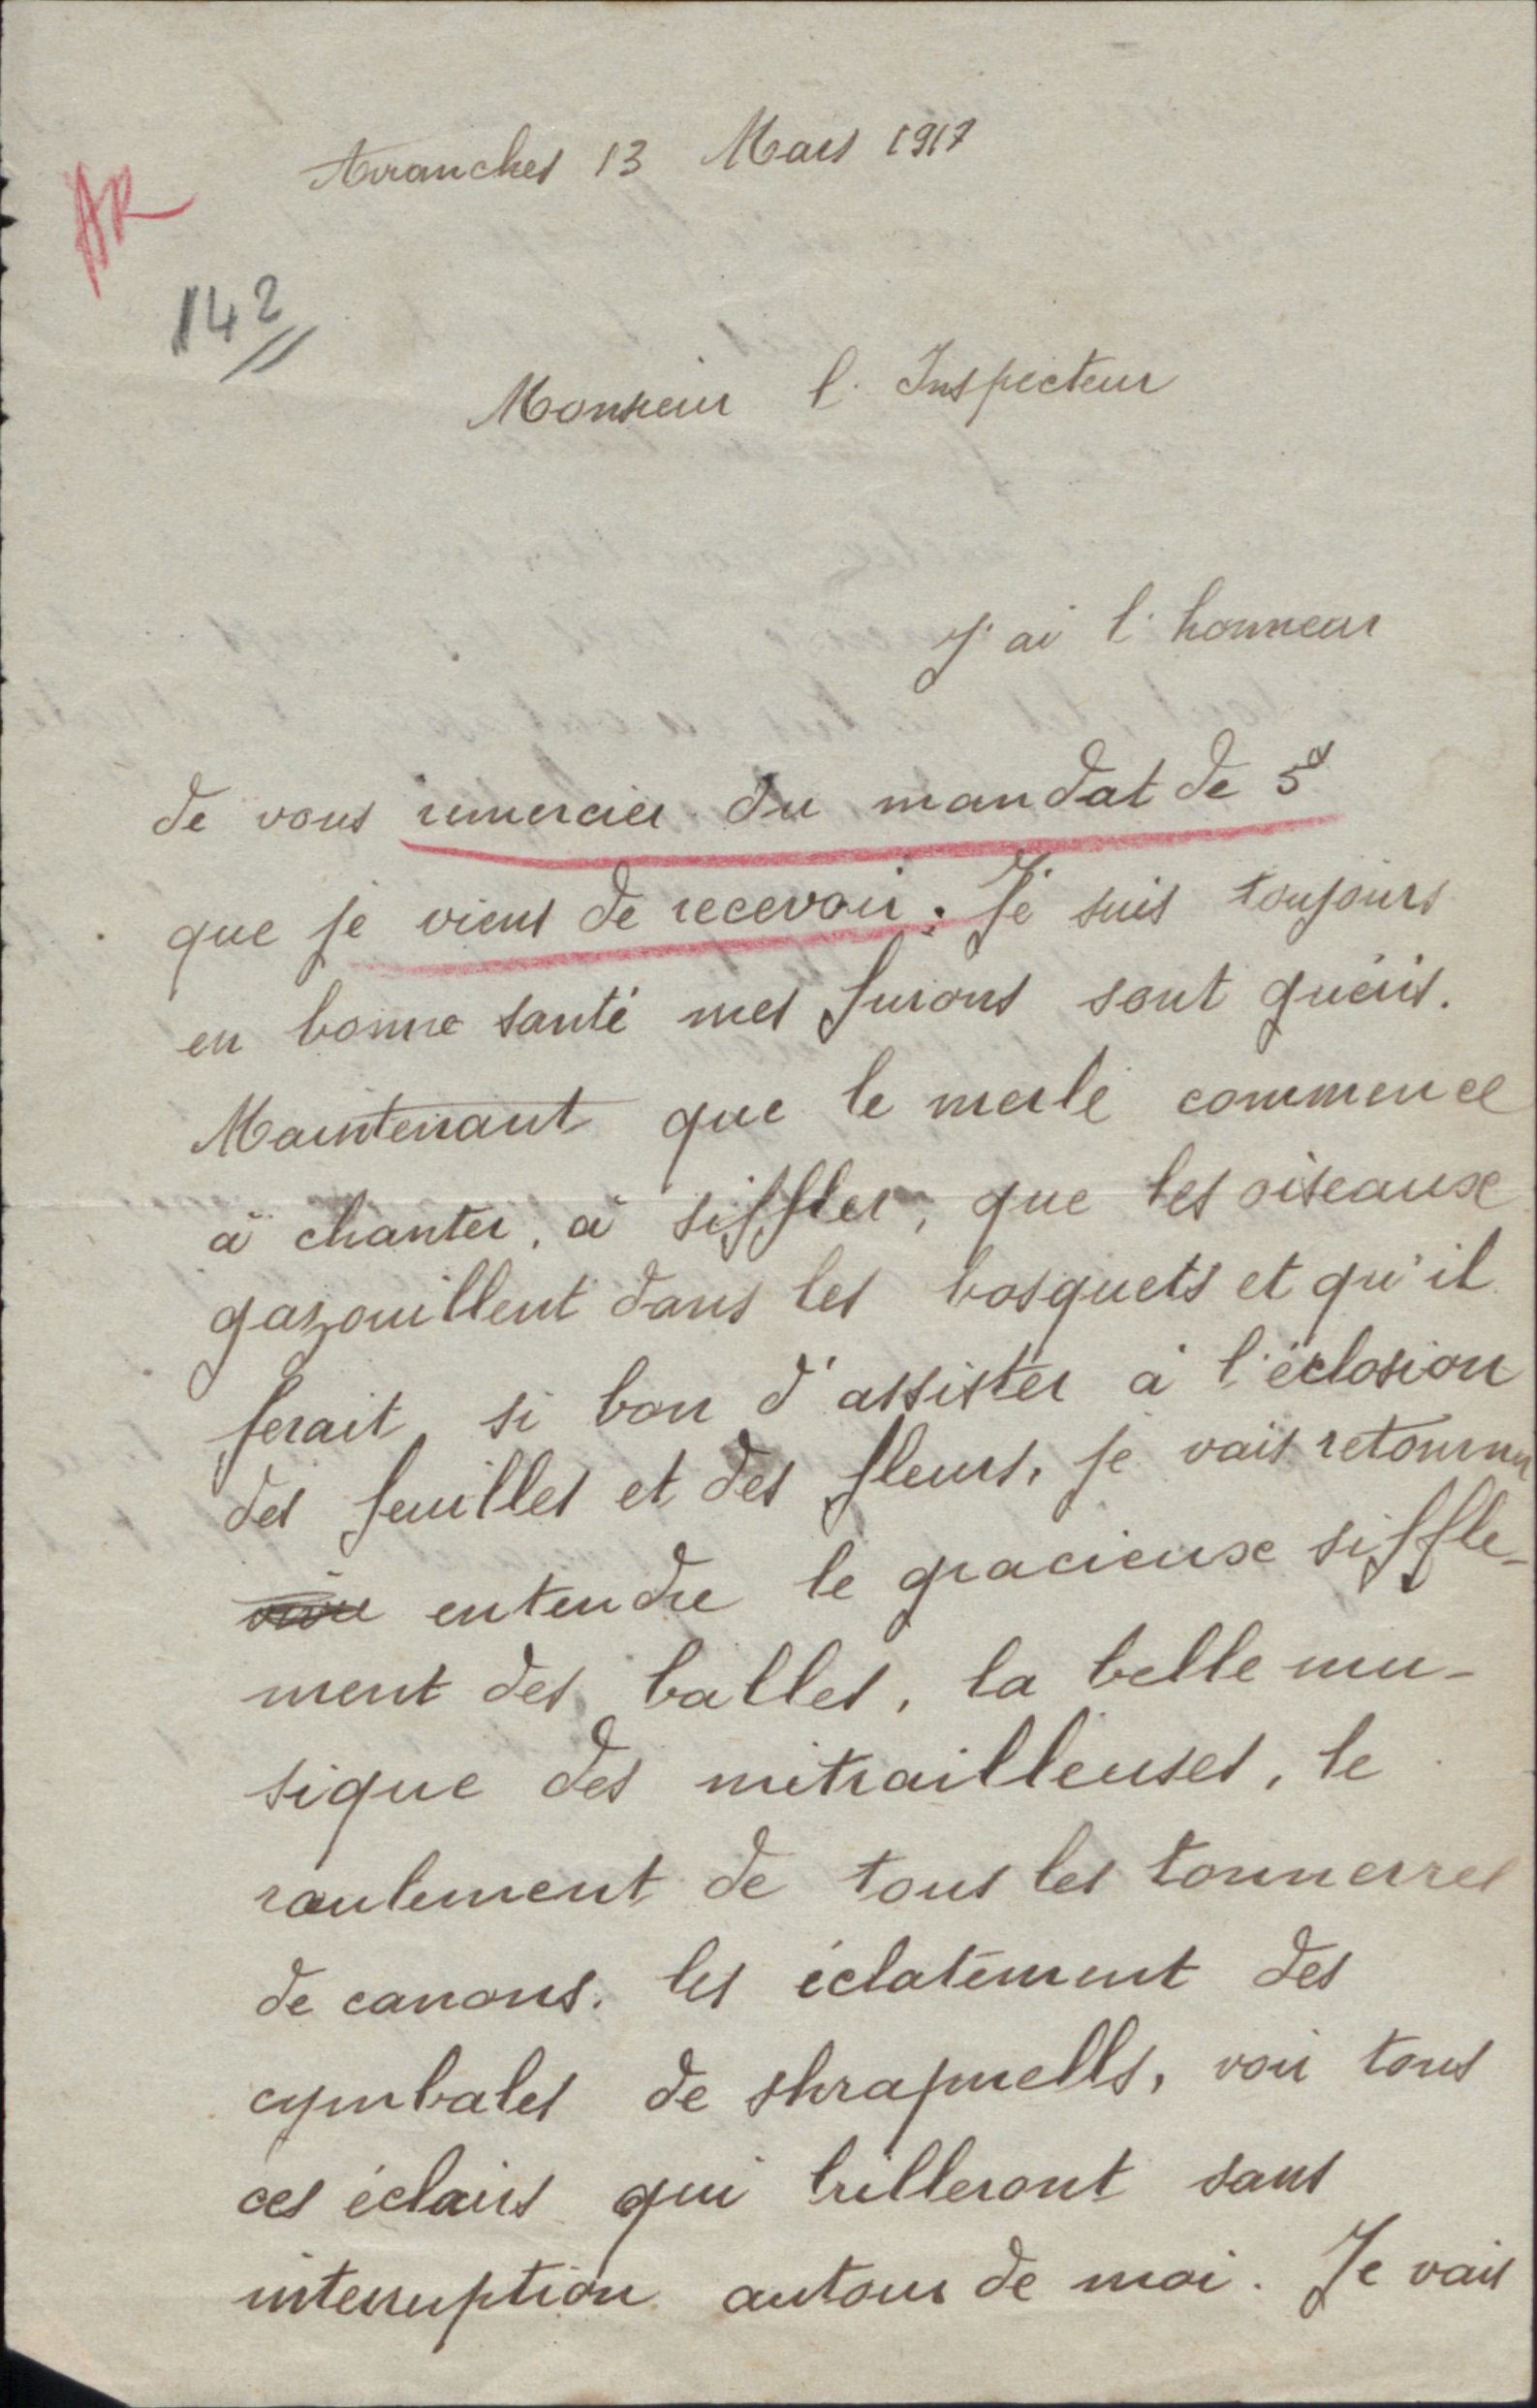 Avranches 13 Mars 1917
AR
142
Monsieur l'Inspecteur
J'ai l'honneur
de vous remercier du mandat de 5f
que je viens de recevoir. Je suis toujours
en bonne santé mes furons sont guéris.
Maintenant que le merle commence
à chanter, à siffler, que les oiseaux
gazouillent dans les bosquets et qu'il
ferait si bon d'assister à l'éclosion
des feuilles et des fleurs, je vais retourner
entendre le gracieuse siffle-
ment des balles, la belle mu-
sique des mitrailleuses, le
roulement de tous les tonnerres
de canons, les éclatement des
cymbales de shrapnells, voir tous
ces éclairs qui brilleront sans
interruption autour de moi. Je vais